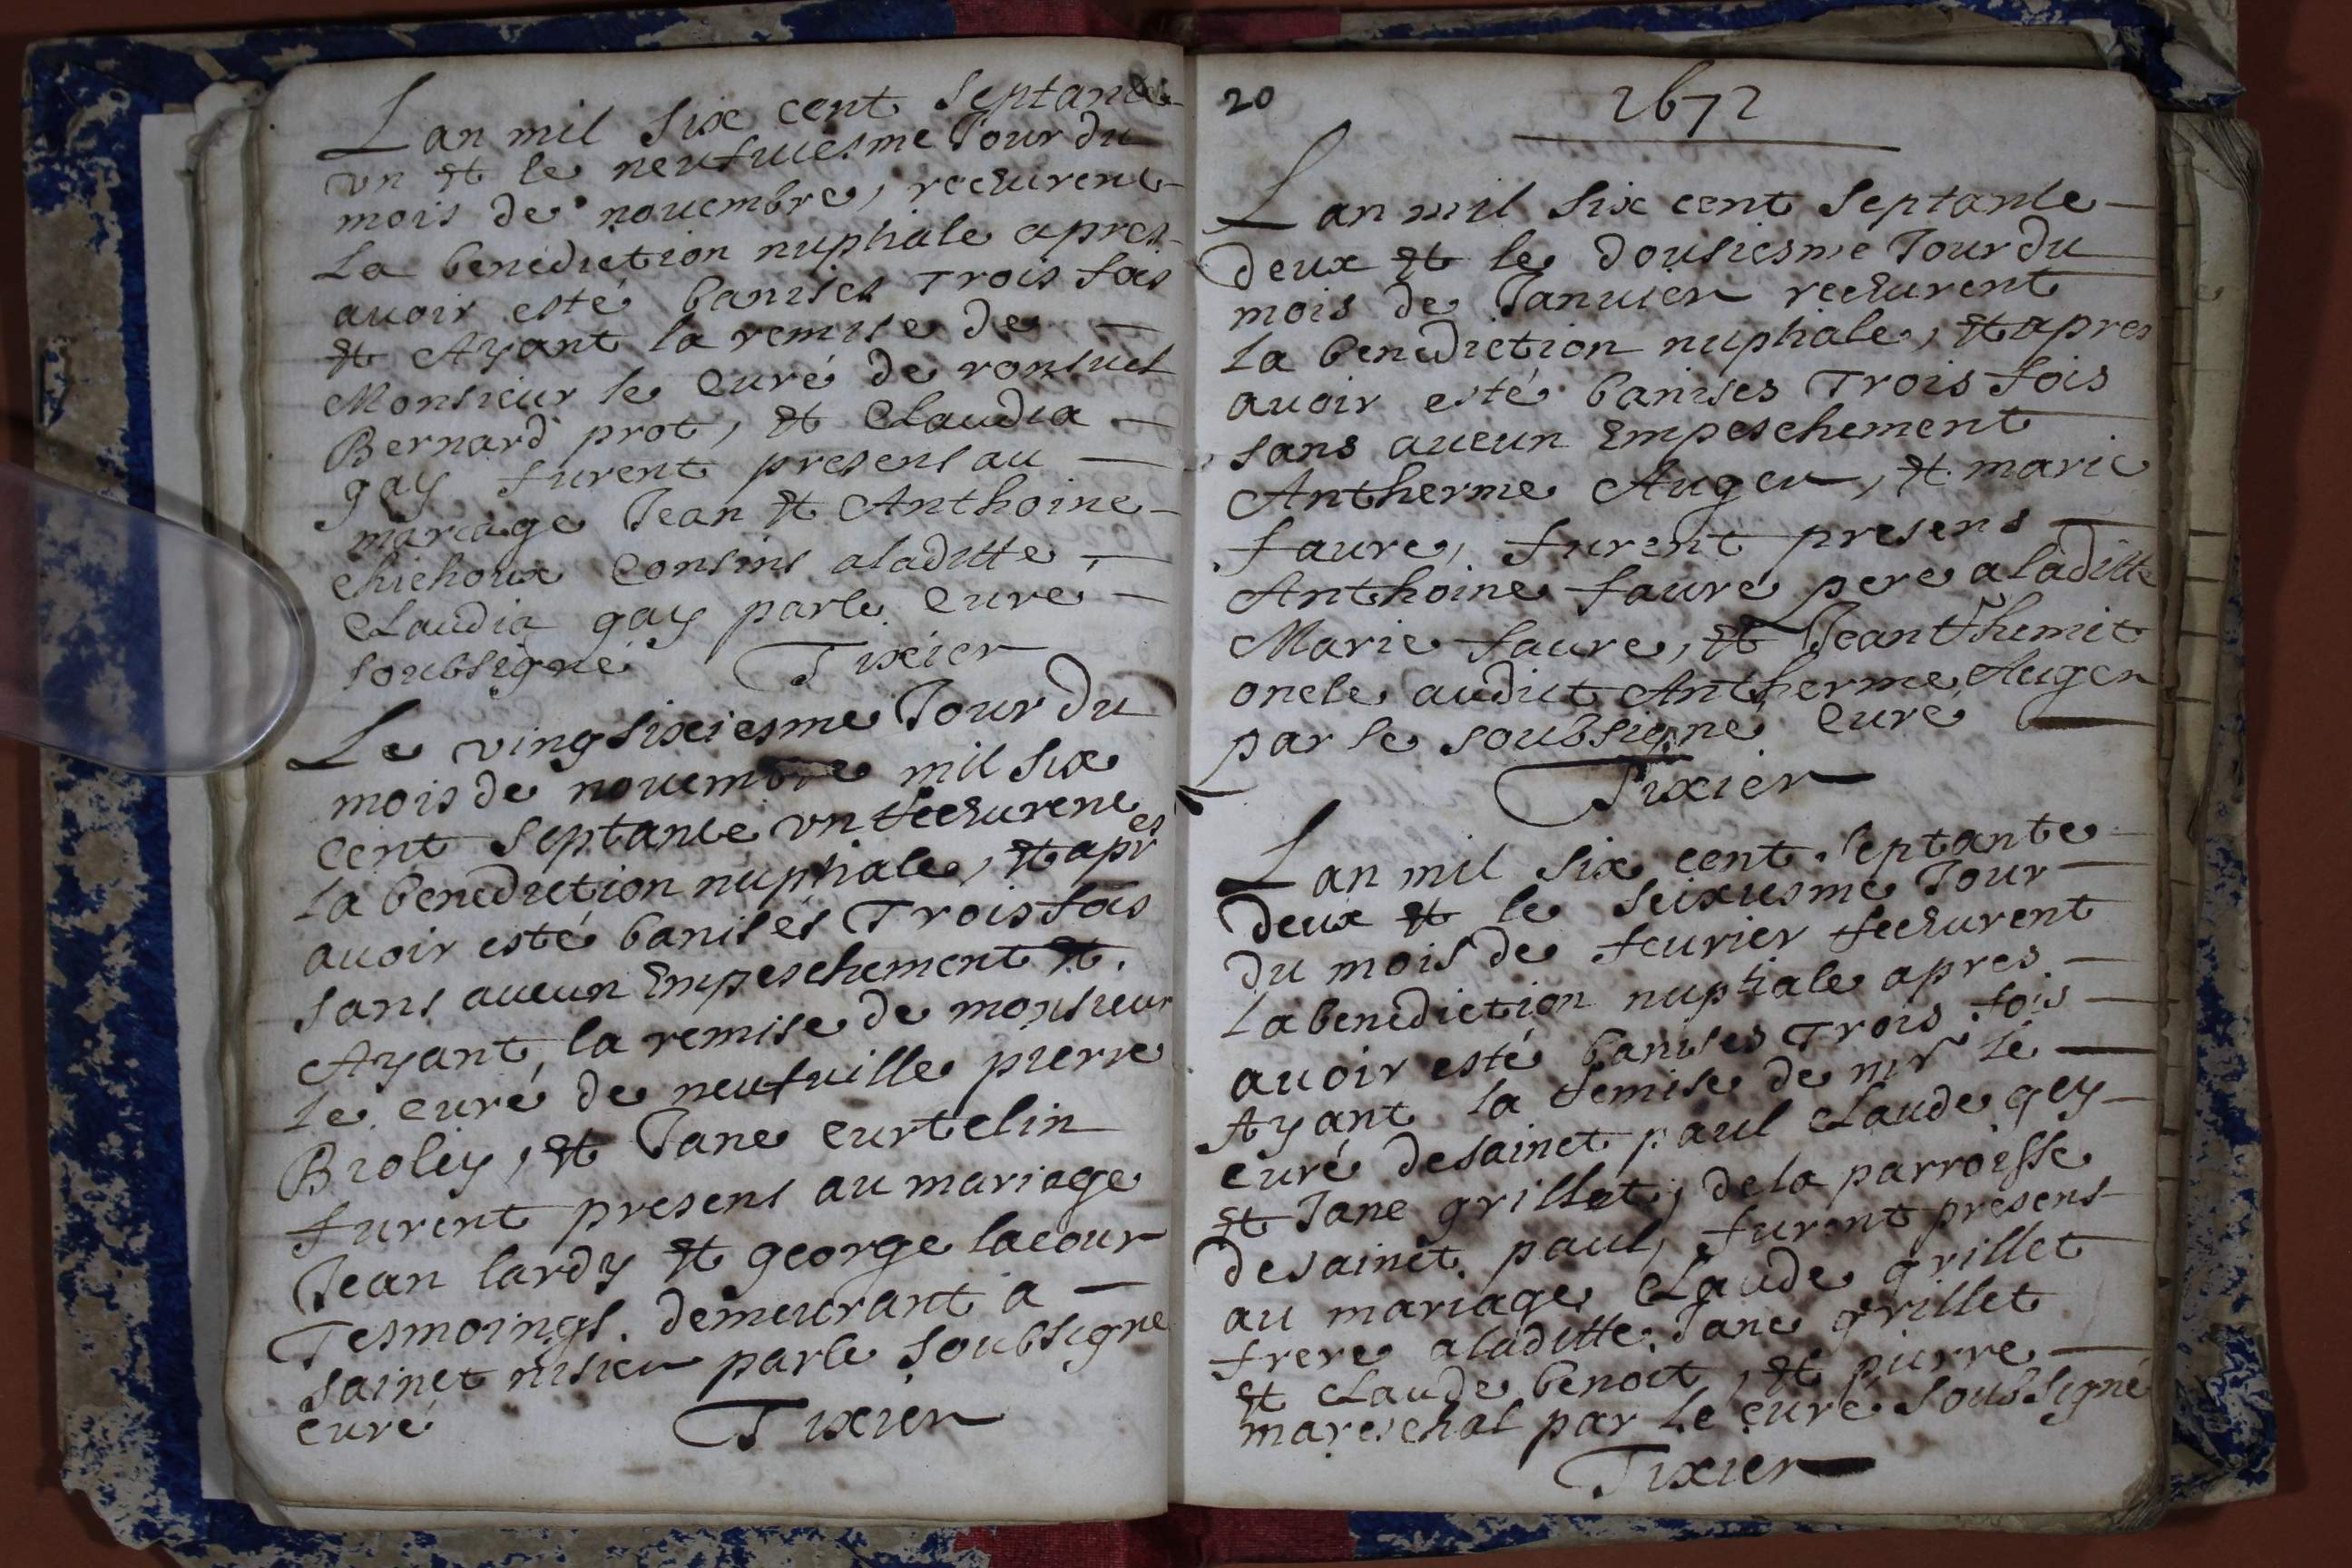 Lan mil six cent septante
vn et le neufuiesme Jour du
mois de nouembre, recеurent
La benediction nuptiale apres
auoir esté banises Trois fois
et Ayant la remise de
Monsieur le Curé de ronsuel
Bernard prot, et Claudia
gay furent present au
mariage Jean et Anthoine
chichoux Consins aladitte
Claudia gay parle Cure
soubsigné Tixier
Le vingsixiesme Jour du
mois de nouembre mil six
cent septante vn Receurent
La benediction nuptiale, et apres
auoir esté banisés Trois fois
sans aucun Empeschement et
Ayant, la remise de monsieur
le curé de neufuille pierre
Broliy, et Jane curtelin
furent presens au mariage
Jean lardy et george lacour
Tesmoings. demeurant a
sainct nisier parle soubsigne
curé Tixier
20
1672
Lan mil six cent septante
deux et le dousiesme Jour du
mois de Januier receurent
La benediction nuptiale, et apres
auoir esté banises Trois fois
sans aucun Empeschement
Antherme Auger, et marie
faure, furent presens
Anthoine faure pere aladitte
Marie faure, et Jean Thimit
oncle audict Antherme Auger
par le soubsigne Cure
Tixier
Lan mil six cent septante
deux et le seixiesme Jour
du mois de feurier Receurent
La benediction nuptiale apres
auoir esté banises Trois fois
Ayant la Remise de mr le
curé desainct paul Claude gey
et Jane grillet, dela parroisse
desainct paul, furent presens
au mariage Claude grillet
frere aladitte Jane grillet
et Claude benoit, et pierre
mareschal par le curé soubsigné
Tixier